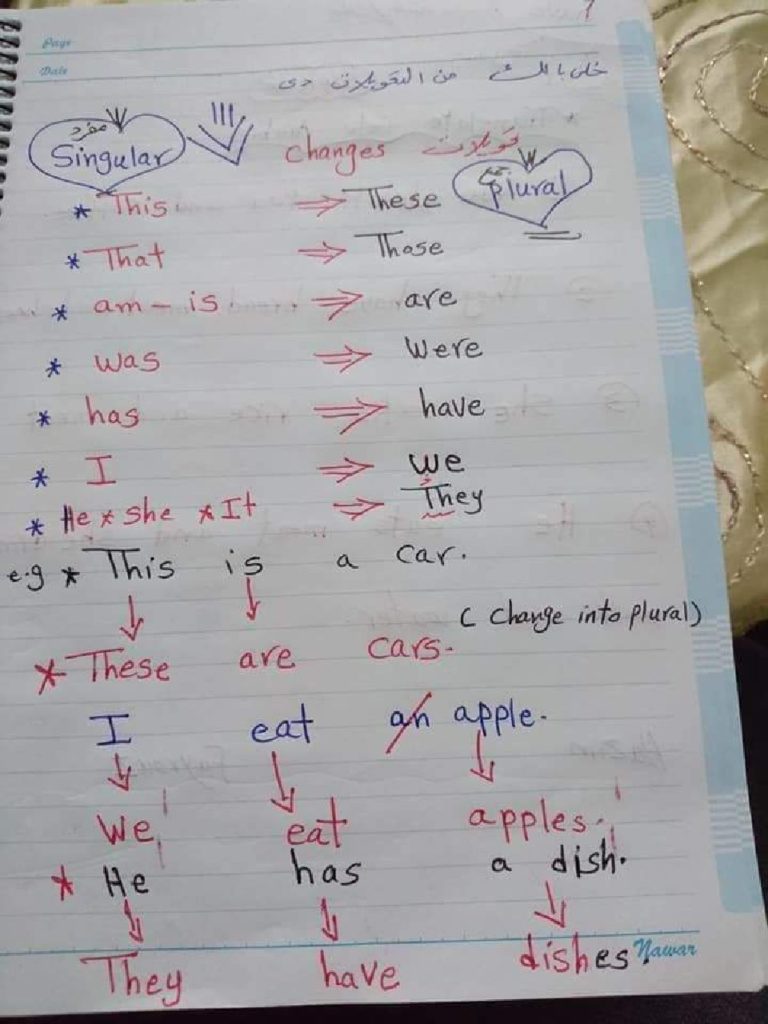 Page
Date
خلى بالك من التحويلات دى
مفرد
Singular
changes تحويلات
جمع
plural
* This ⇒ These
* That ⇒ Those
* am - is ⇒ are
* was ⇒ were
* has ⇒ have
* I ⇒ we
* He * she * It ⇒ They
e.g * This is a car.
( Change into plural)
* These are cars.
I eat an apple.
We eat apples.
* He has a dish.
They have dishes.
Nawar